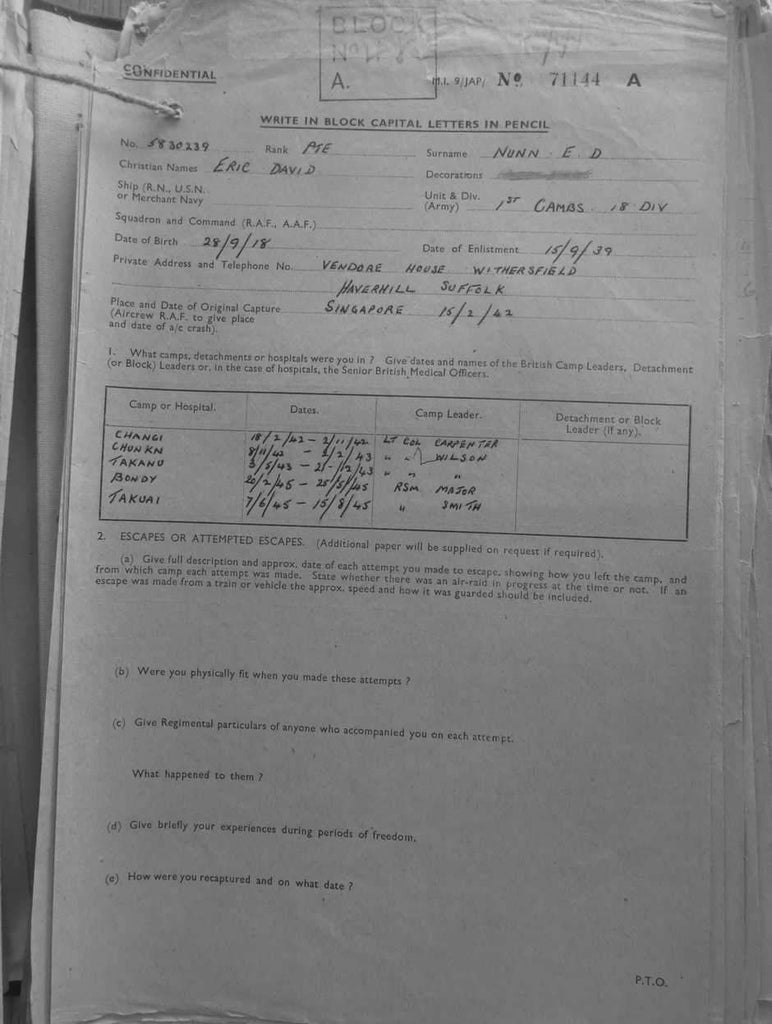 BLOCK
CONFIDENTIAL
A.
M.I. 9/JAP/ No 71144 A
WRITE IN BLOCK CAPITAL LETTERS IN PENCIL
No. 5830239 Rank PTE Surname NUNN E. D
Christian Names ERIC DAVID Decorations
Ship (R.N., U.S.N. or Merchant Navy Unit & Div. (Army) 1ST CAMBS 18 DIV
Squadron and Command (R.A.F., A.A.F.)
Date of Birth 28/9/18 Date of Enlistment 15/9/39
Private Address and Telephone No. VENDORE HOUSE WITHERSFIELD
HAVERHILL SUFFOLK
Place and Date of Original Capture SINGAPORE 15/2/42
(Aircrew R.A.F. to give place
and date of a/c crash).
1. What camps, detachments or hospitals were you in ? Give dates and names of the British Camp Leaders, Detachment
(or Block) Leaders or, in the case of hospitals, the Senior British Medical Officers.
Camp or Hospital. Dates. Camp Leader. Detachment or Block Leader (if any).
CHANGI 18/2/42 – 2/11/42 LT COL CARPENTER
CHUNKN 8/11/42 – /2/43 " " WILSON
TAKANU 3/5/43 – 2/12/43 " " "
BONDY 20/2/45 – 25/5/45 RSM MAJOR
TAKUAI 7/6/45 – 15/8/45 " SMITH
2. ESCAPES OR ATTEMPTED ESCAPES. (Additional paper will be supplied on request if required).
(a) Give full description and approx. date of each attempt you made to escape, showing how you left the camp, and
from which camp each attempt was made. State whether there was an air-raid in progress at the time or not. If an
escape was made from a train or vehicle the approx. speed and how it was guarded should be included.
(b) Were you physically fit when you made these attempts ?
(c) Give Regimental particulars of anyone who accompanied you on each attempt.
What happened to them ?
(d) Give briefly your experiences during periods of freedom.
(e) How were you recaptured and on what date ?
P.T.O.